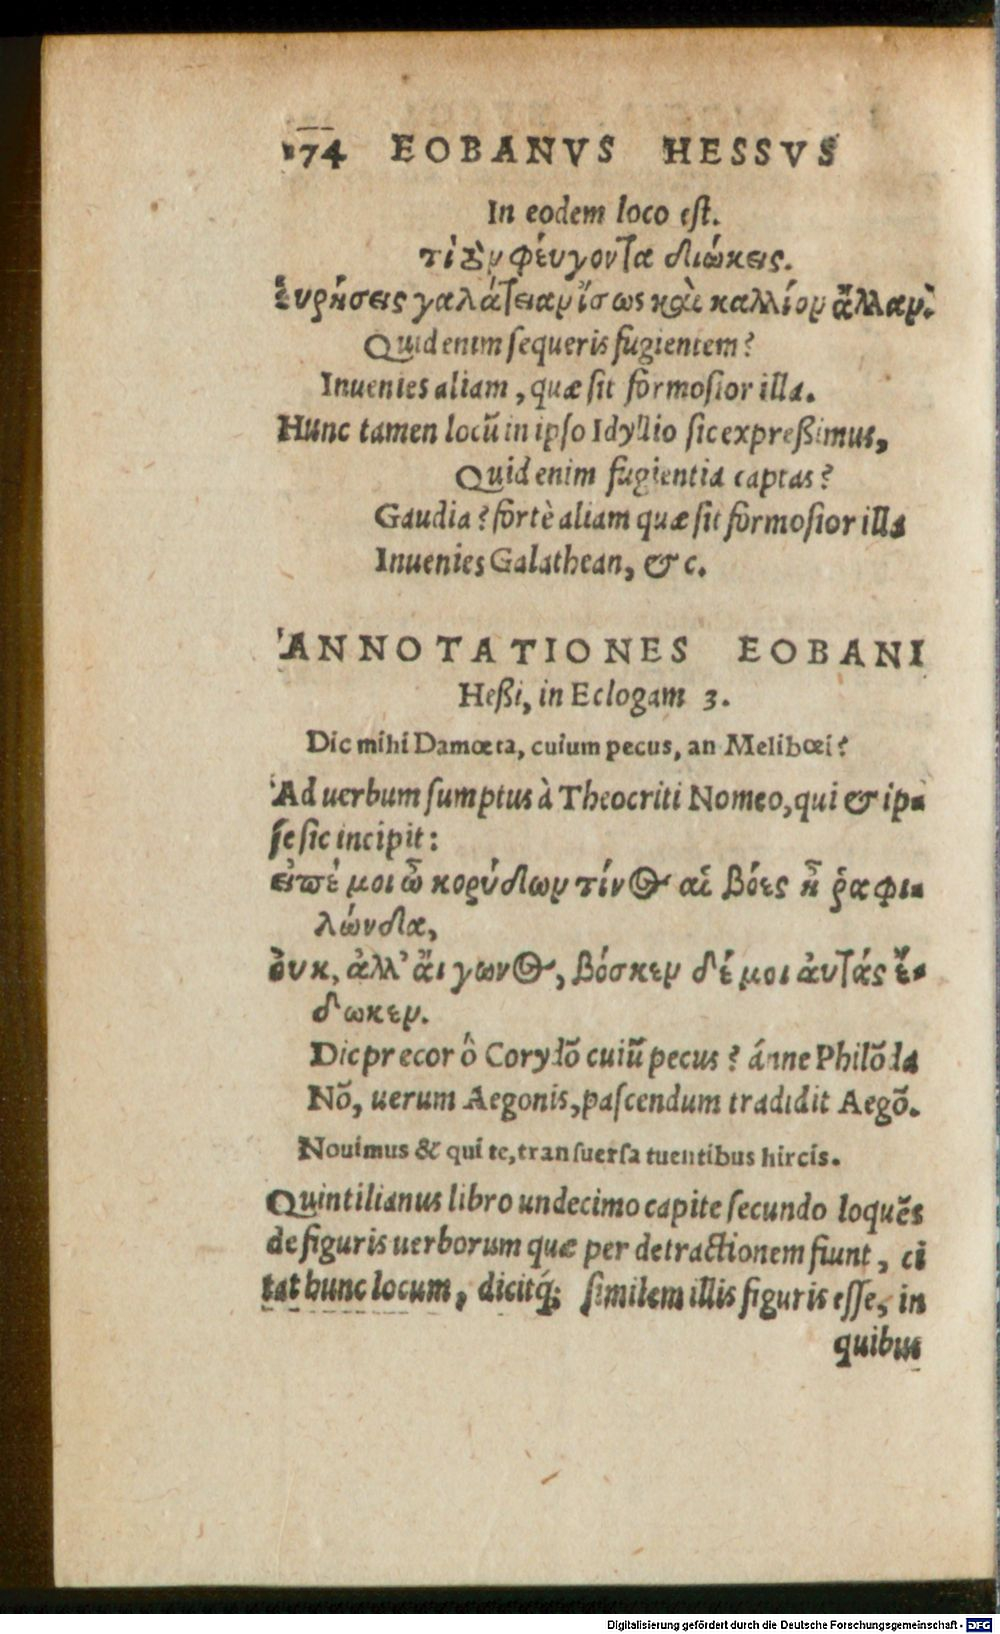 174 EOBANVS HESSVS
In eodem loco eſt.
τὶ τὸν φέυγοντα διώκεις.
ἑυρήσεις γαλάτειαν ἴσως καὶ καλλίον ἄλλαν.
Quid enim ſequeris fugientem?
Inuenies aliam, quæ ſit formoſior illa.
Hunc tamen locū in ipſo Idyllio ſic expreßimus,
Quid enim fugientia captas?
Gaudia? fortè aliam quæ ſit formoſior illa
Inuenies Galathean, & c.
ANNOTATIONES EOBANI
Heßi, in Eclogam 3.
Dic mihi Damœta, cuium pecus, an Melibœi?
Ad uerbum ſumptus à Theocriti Nomeo, qui & ip-
ſe ſic incipit:
ειπέ μοι ὦ κορύδων τίνος αἱ βόες ἦ ῥα φι-
λώνδα,
ὀυκ, ἀλλ' ἄι γωνος, βόσκεν δέ μοι ἀυτάς ἔ-
δωκεν.
Dic precor ô Corydō cuiū pecus? ánne Philōda
Nō, uerum Aegonis, paſcendum tradidit Aegō.
Nouimus & qui te, tranſuerſa tuentibus hircis.
Quintilianus libro undecimo capite ſecundo loquēs
de figuris uerborum quæ per detractionem fiunt, ci
tat hunc locum, dicitq́; ſimilem illis figuris eſſe, in
quibus
Digitalisierung gefördert durch die Deutsche Forschungsgemeinschaft - DFG